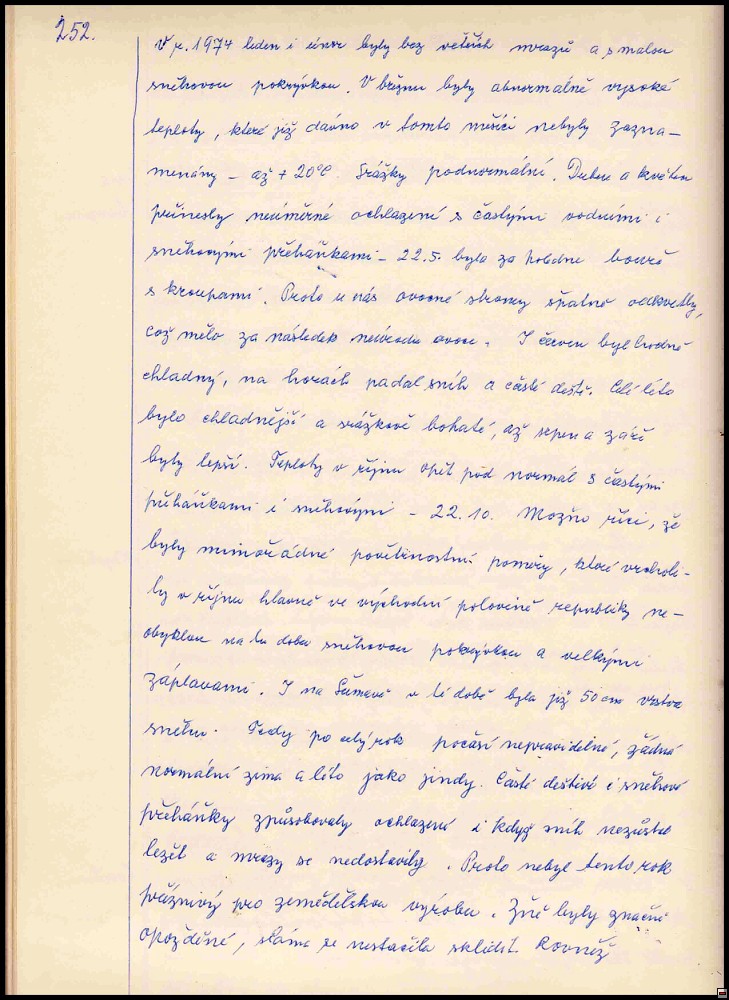 252.
V r. 1974 leden i únor byly bez větších mrazů a s malou
sněhovou pokrývkou. V březnu byly abnormálně vysoké
teploty, které již dávno v tomto měsíci nebyly zazna-
menány - až + 20°C. Srážky podnormální. Duben a květen
přinesly neúměrné ochlazení s častými vodními i
sněhovými přeháňkami - 22.5. byla za poledne bouře
s kroupami. Proto u nás ovocné stromy špatně odkvetly,
což mělo za následek neúrodu ovoce. I červen byl hodně
chladný, na horách padal sníh a časté deště. Celé léto
bylo chladnější a srážkově bohaté, až srpen a září
byly lepší. Teploty v říjnu opět pod normál s častými
přeháňkami i sněhovými - 22.10. Možno říci, že
byly mimořádné povětrnostní poměry, které vrcholi-
ly v říjnu hlavně ve východní polovině republiky ne-
obyklou na tu dobu sněhovou pokrývkou a velkými
záplavami. I na Šumavě v té době byla již 50 cm vrstva
sněhu. Tedy po celý rok počasí nepravidelné, žádná
normální zima a léto jako jindy. Časté deštivé i sněhové
přeháňky způsobovaly ochlazení i když sníh nezůstal
ležet a mrazy se nedostavily. Proto nebyl tento rok
příznivý pro zemědělskou výrobu. Žně byly značně
opožděné, sláma se nestačila sklidit. Rovněž